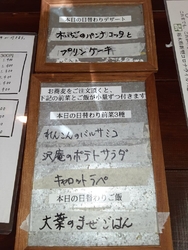 本日の日替わりデザート
プリンケーキ
お蕎麦をご注文頂くと、
下記の前菜とご飯が小量ずつ付きます
本日の日替わり前菜3種
れんこんのバルサミコ
沢庵のポテトサラダ
キャロットラペ
本日の日替わりご飯
大葉のまぜごはん